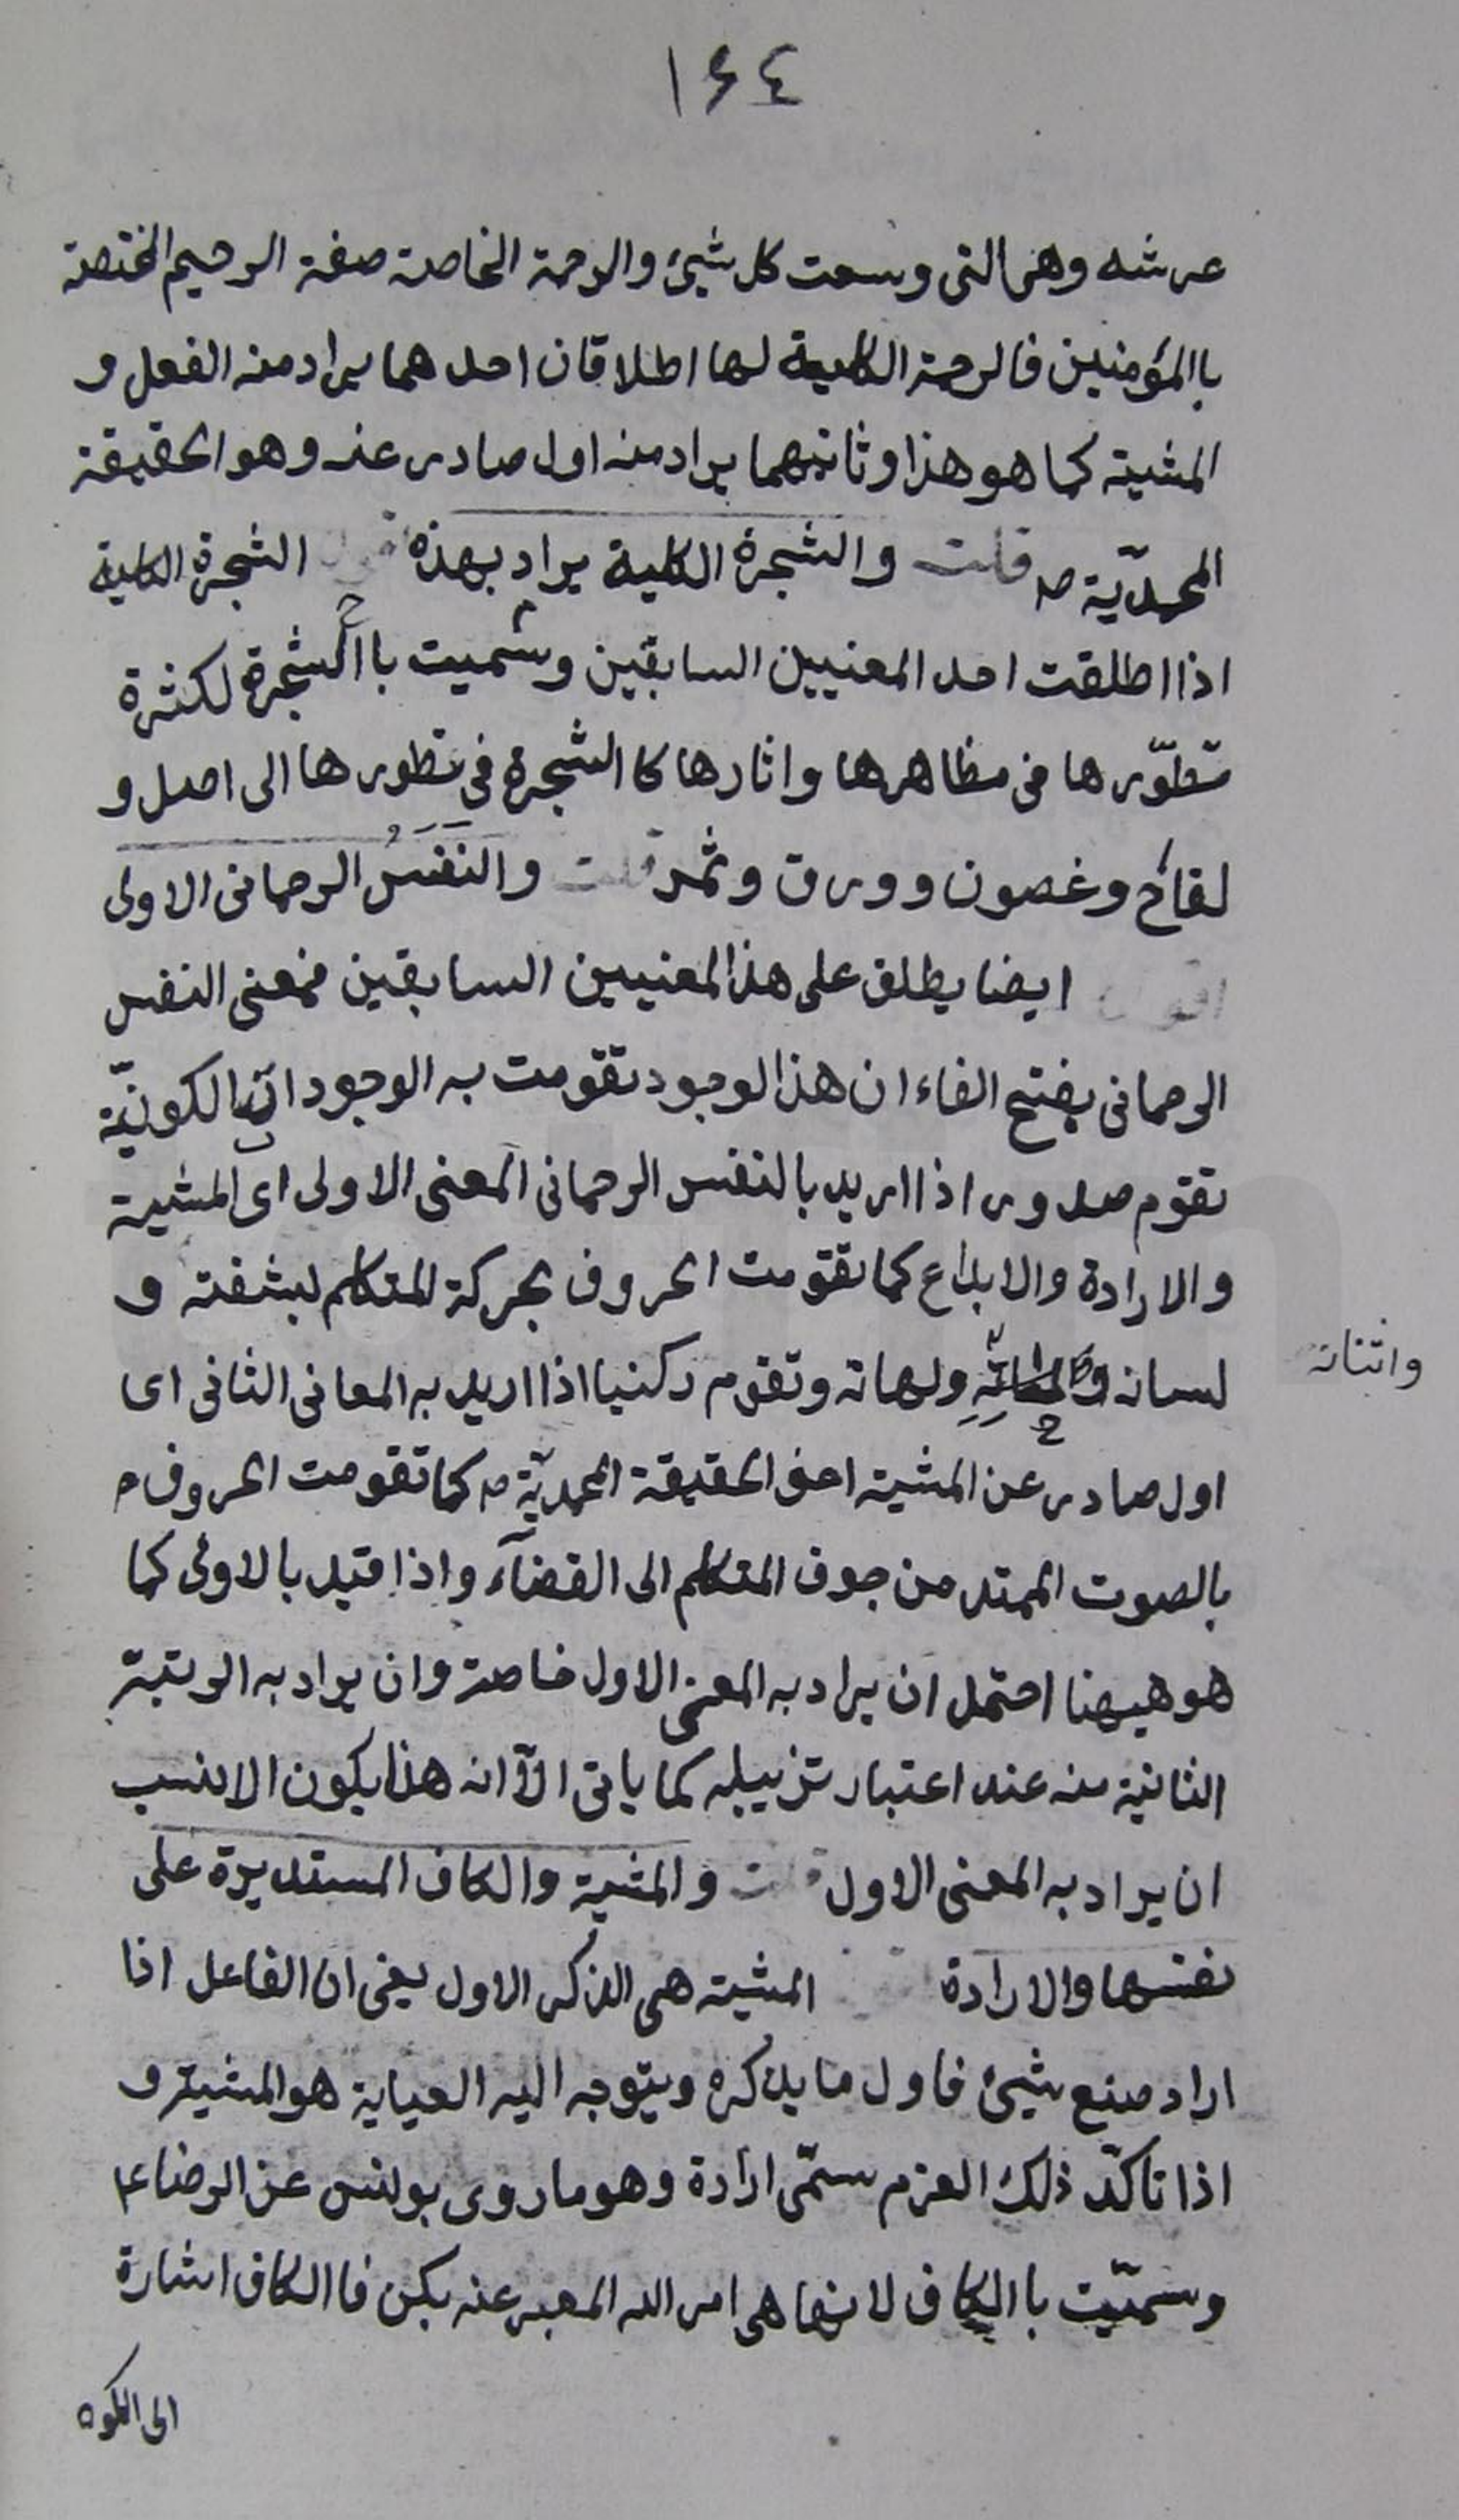 ١٤٤
عرشه وهى التى وسعت كل شيئ والرحمة الخاصة صفة الرحيم المختصة
باالمؤمنين فالرحمة الكلية لها اطلاقان احدهما يراد منه الفعل و
المشية كما هو هذا وثانيهما يراد منه اول صادر عنه وهو الحقيقة
المحمديّة ص قلت والشجرة الكلية يراد بهذه الشجرة الكلية
اذا اطلقت احد المعنيين السابقين وسميت باالشجرة لكثرة
تطوّرها فى مظاهرها واثارها كاالشجرة في تطورها الى اصل و
لقاح وغصون وورق وثمر قلت والنَفَسُ الرحمانى الاولى
اقول ايضا يطلق على هذا المعنيين السابقين فمعنى النفس
الرحمانى بفتح الفاء ان هذا الوجود تقومت به الوجودات الكونيّة
تقوم صدور اذا اريد بالنفس الرحمانى المعنى الاولى اى المشية
والارادة والابداع كما تقومت الحروف بحركة المتكلم بشفته و
لسانه ولهاته وتقوم ركنيا اذا اريد به المعانى الثانى اى
واثنانه
اول صادر عن المشية اعنى الحقيقة المحمديّة ص كما تقومت الحروف
بالصوت الممتد من جوف المتكلم الى الفضآء واذا قيد بالاولى كما
هو هيهنا احتمل ان يراد به المعنى الاول خاصة وان يراد به الرتبة
الثانية منه عند اعتبار تنزيله كما ياتى الآ انه هذا يكون الانسب
ان يراد به المعنى الاول قلت والمشية والكاف المستديرة على
نفسها والارادة المشية هى الذكر الاول يعنى ان الفاعل اذا
اراد صنع شيئ فاول ما يذكره ويتوجه اليه العياية هو المشية و
اذا تاكّد ذلك العزم سمّى ارادة وهو ما روى يونس عن الرضا ع
وسمّيت باالكاف لانها هى امر الله المعبر عنه بكن فاالكاف اشارة
الى الكون